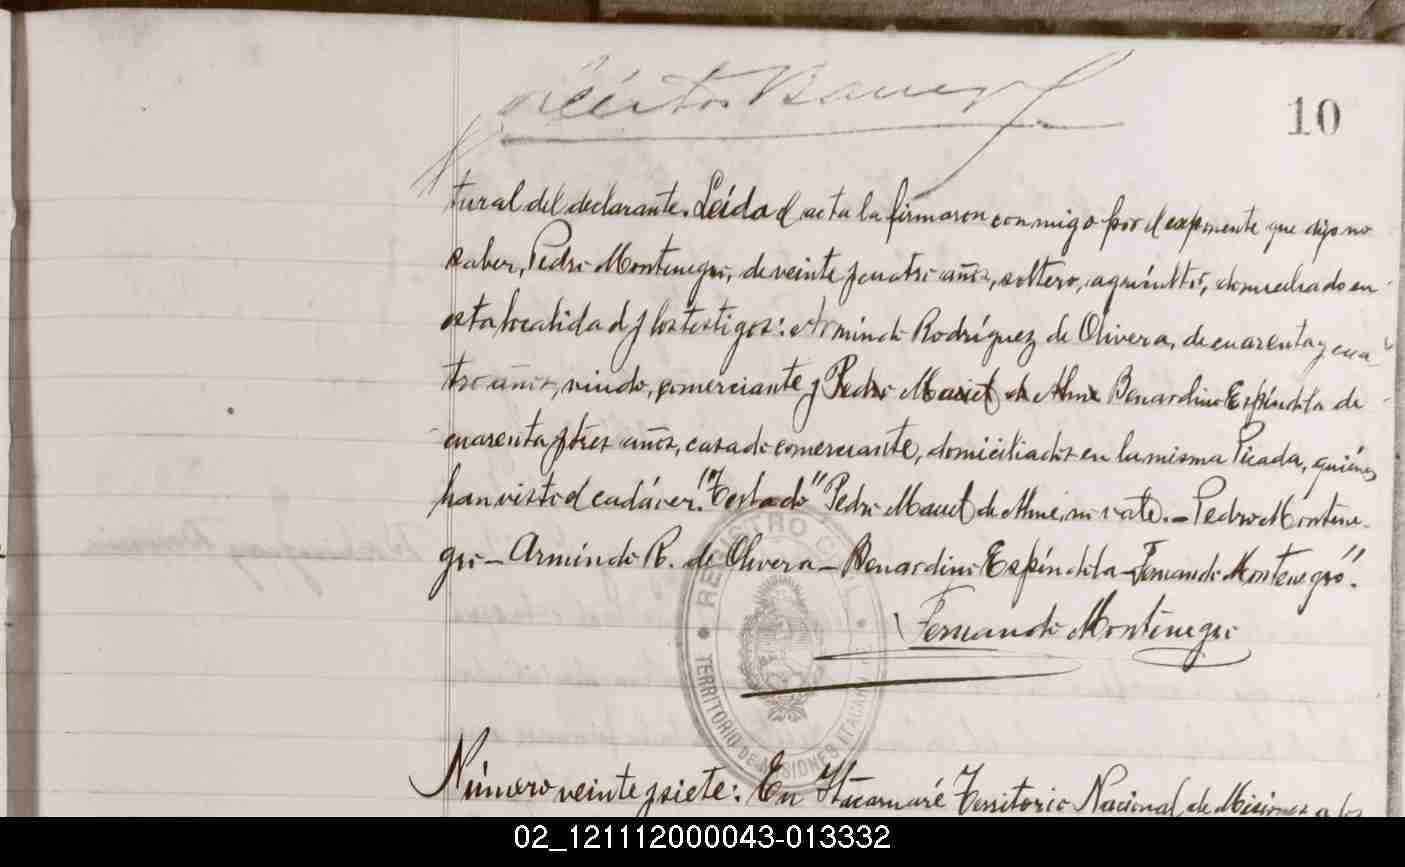 10
tural del declarante. Leída el acta la firmaron conmigo por el exponente que dijo no
saber, Pedro Montenegro, de veinte y cuatro años, soltero, agricultor, domiciliado en
esta localidad y los testigos: Armindo Rodríguez de Olivera, de cuarenta y cua-
tro años, viudo, comerciante y Pedro Benardino Espíndola de
cuarenta y tres años, casado comerciante, domiciliados en la misma Picada, quiénes
han visto el cadáver. "Testado" Pedro de no vale. - Pedro Montene-
gro - Armindo R. de Olivera - Benardino Espíndola - Fernando Montenegro".
Fernando Montenegro
REGISTRO CIVIL
TERRITORIO DE MISIONES ITACARUARÉ
Número veinte y siete: En Itacaruaré Territorio Nacional de Misiones a los
02_121112000043-013332